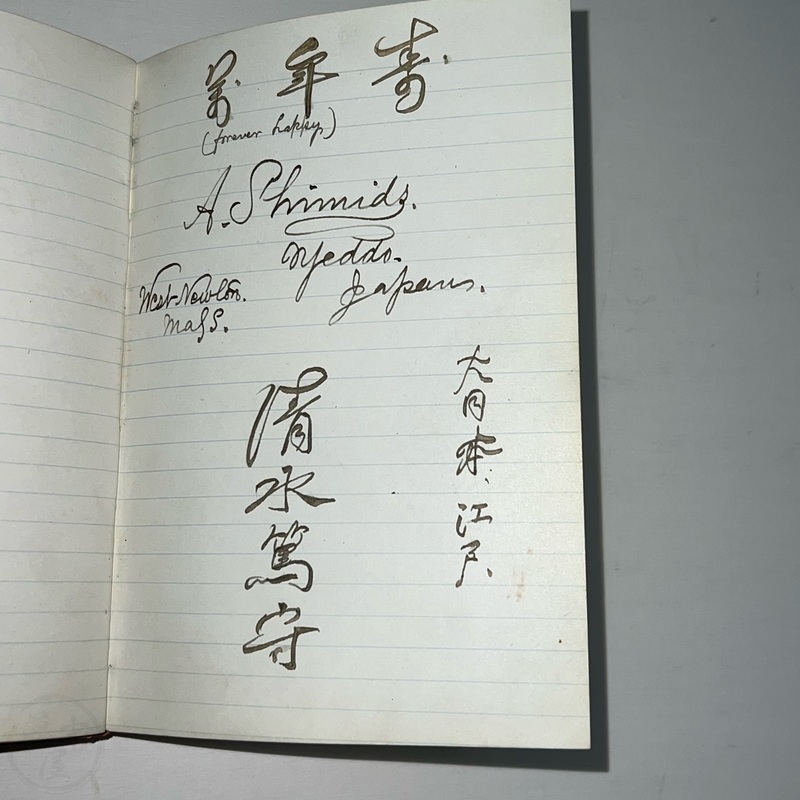 萬年寿
(forever happy)
A. Shimidz.
Yeddo.
Japan.
West-Newton.
Mass.
大日本、江戸、
清水篤守